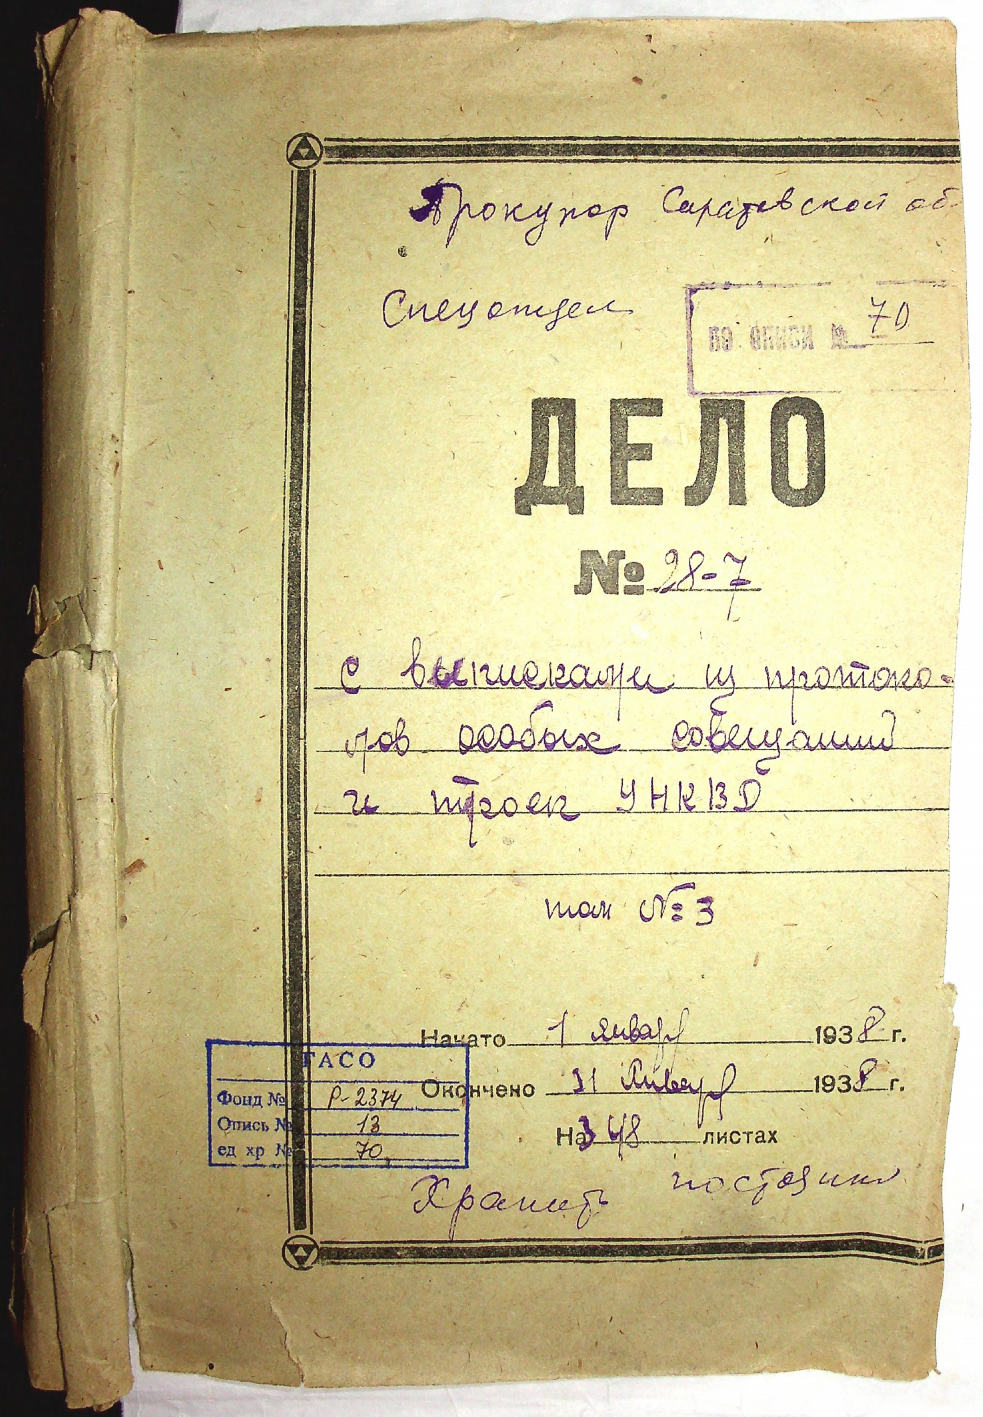 Прокурор Саратовской об
Спецотдел
по описи № 70
ДЕЛО
№ 28-7
с выписками из протоко-
лов особых совещаний
и троек УНКВД
том № 3
Начато 1 января 1938 г.
Окончено 31 января 1938 г.
На 348 листах
Хранить постоянно
ГАСО
Фонд № Р-2374
Опись № 13
ед хр № 70